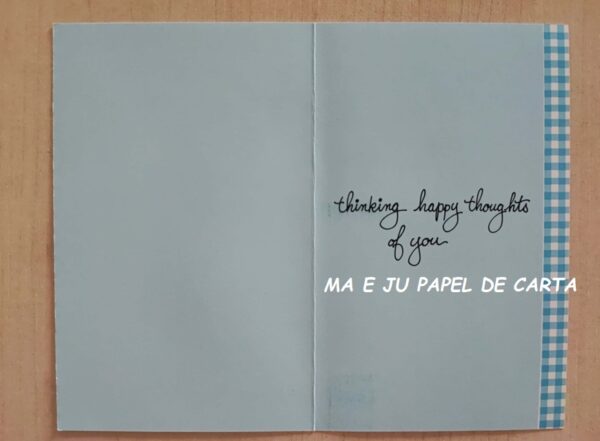 thinking happy thoughts
of you
MA E JU PAPEL DE CARTA